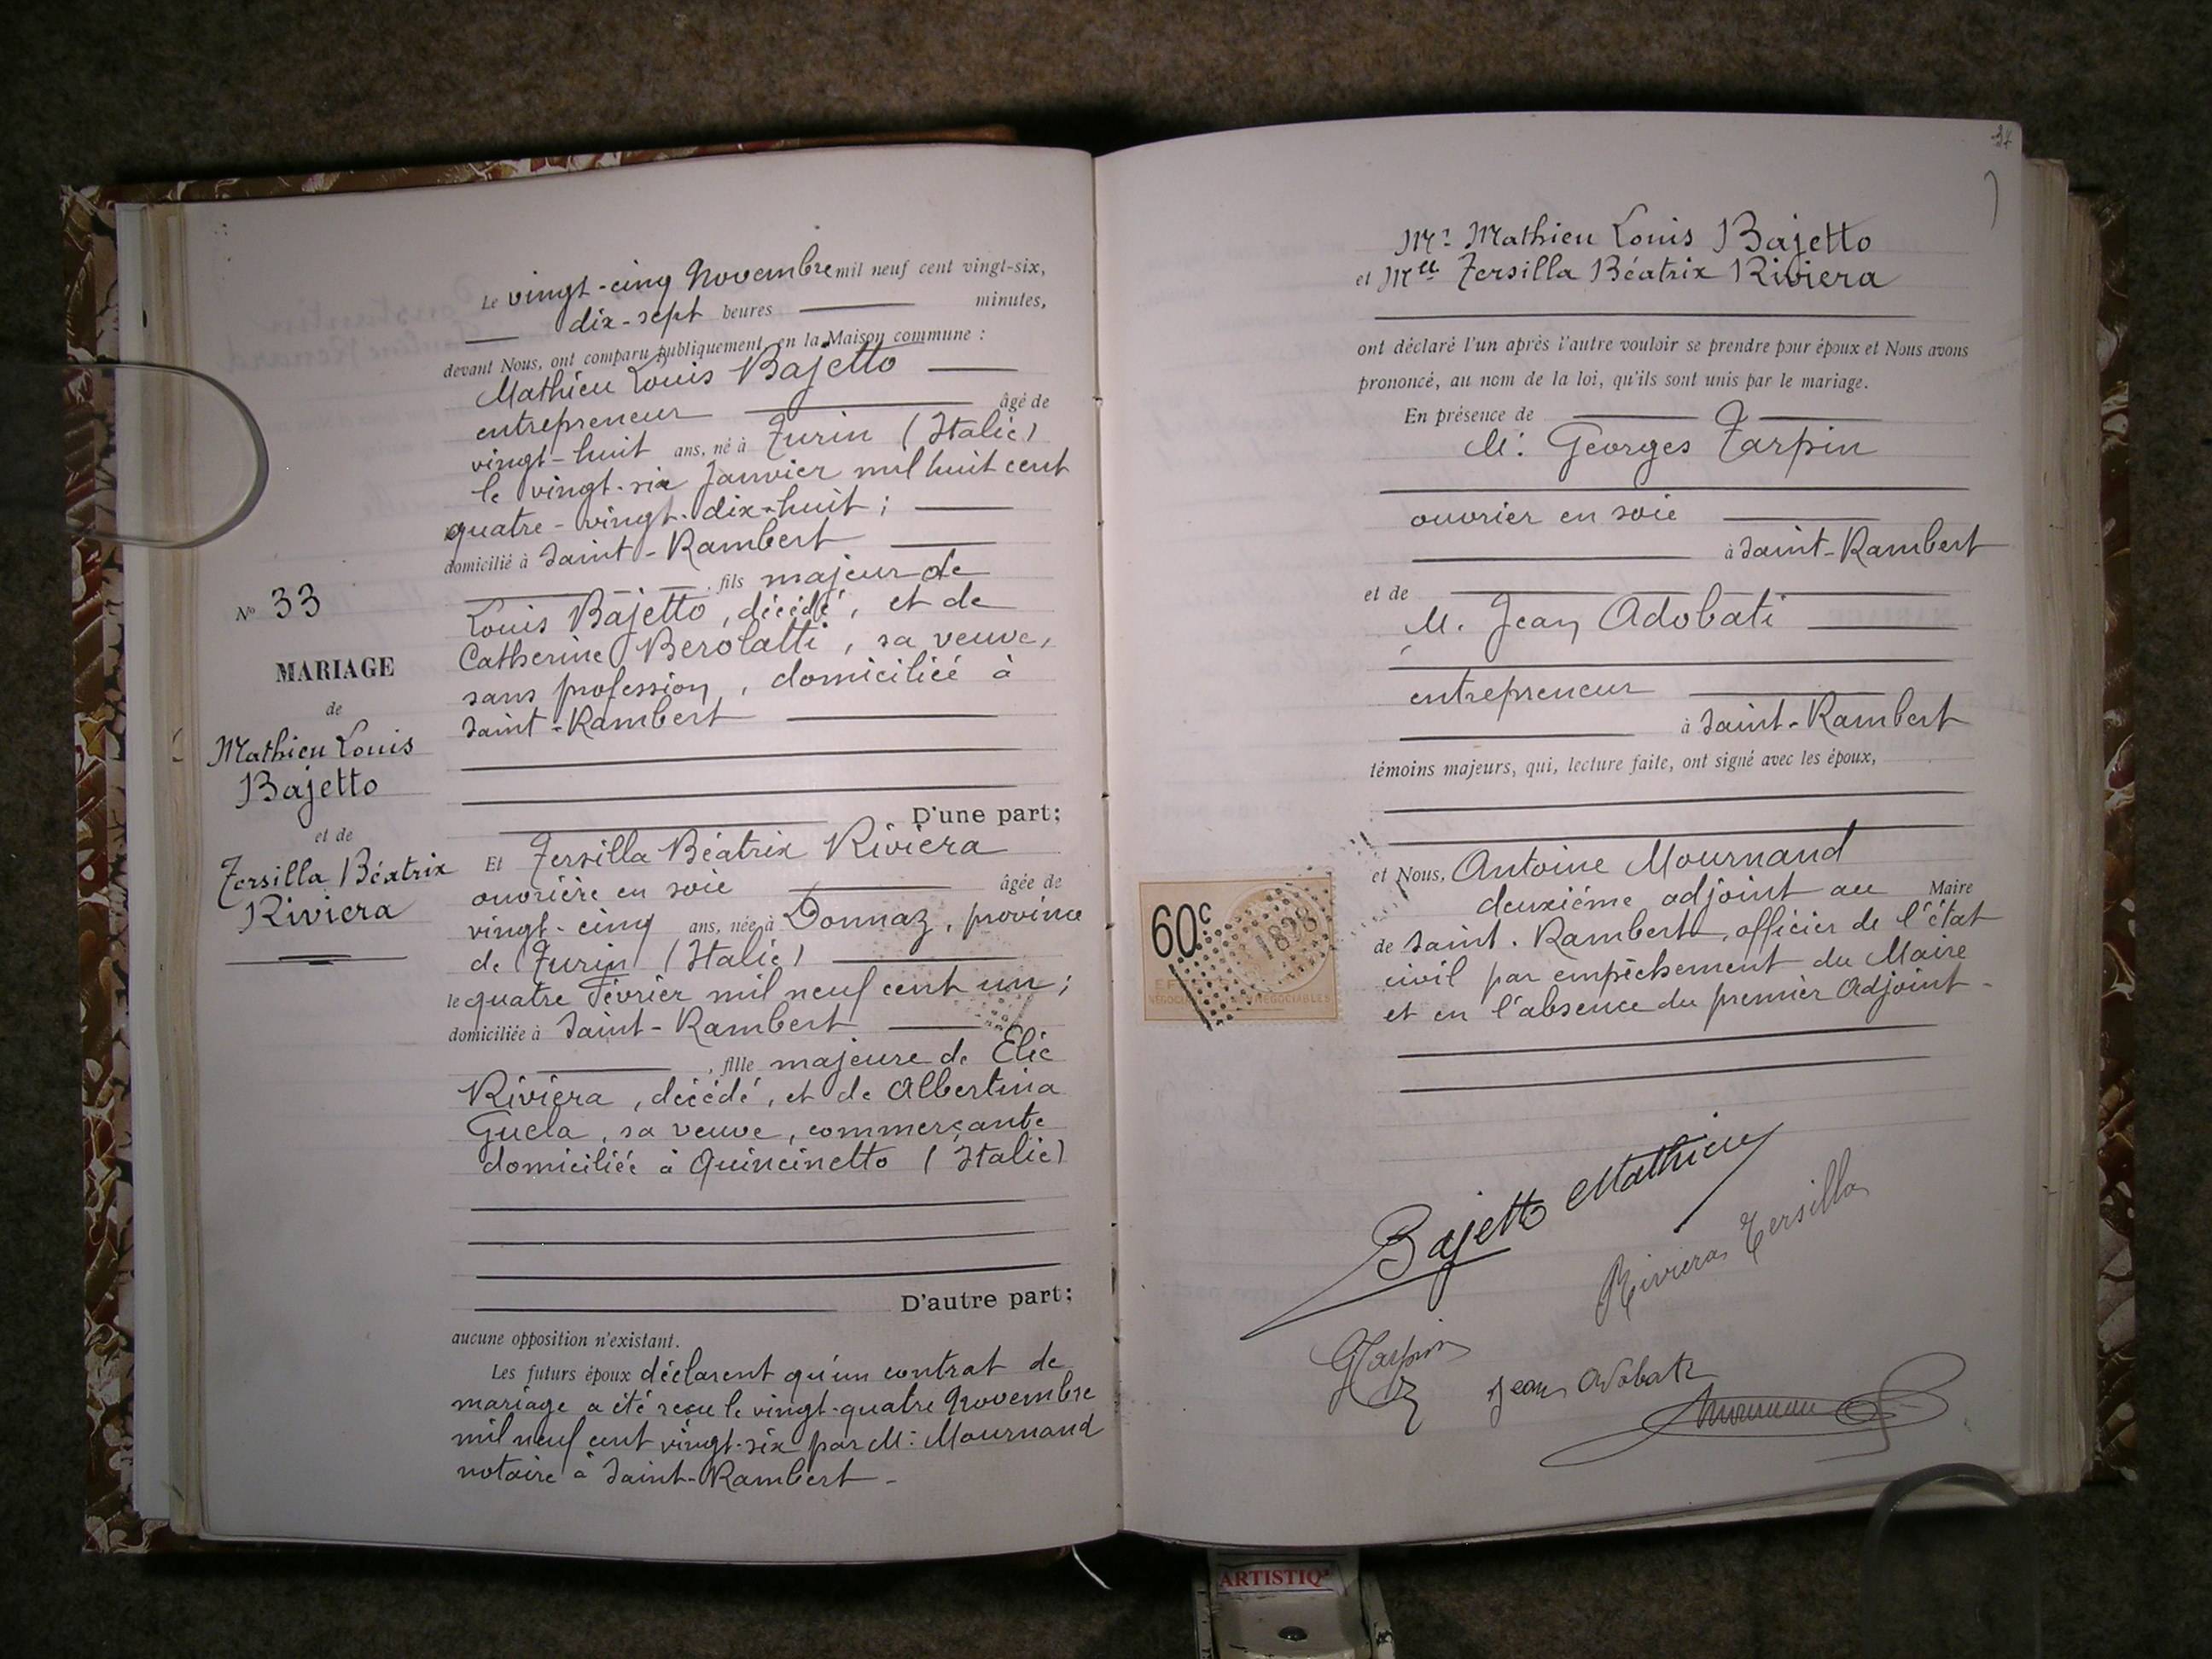 Le vingt-cinq Novembre mil neuf cent vingt-six,
dix-sept heures minutes,
devant Nous, ont comparu publiquement en la Maison commune :
Mathieu Louis Bajetto
entrepreneur âgé de
vingt-huit ans, né à Turin (Italie)
le vingt-six Janvier mil huit cent
quatre-vingt-dix-huit ;
domicilié à Saint-Rambert
, fils majeur de
Louis Bajetto, décédé, et de
Catherine Berolatti, sa veuve,
sans profession, domiciliée à
Saint-Rambert
D'une part;
Et Tersilla Béatrix Riviera
ouvrière en soie âgée de
vingt-cinq ans, née à Donnaz, province
de Turin (Italie)
le quatre Février mil neuf cent un ;
domiciliée à Saint-Rambert
, fille majeure de Elie
Riviera, décédé, et de Albertina
Guela, sa veuve, commerçante
domiciliée à Quincinetto (Italie)
D'autre part;
aucune opposition n'existant.
Les futurs époux déclarent qu'un contrat de
mariage a été reçu le vingt-quatre Novembre
mil neuf cent vingt-six par M: Mournand
notaire à Saint-Rambert -
N° 33
MARIAGE
de
Mathieu Louis
Bajetto
et de
Tersilla Béatrix
Riviera
34
Mr Mathieu Louis Bajetto
et Melle Tersilla Béatrix Riviera
ont déclaré l'un après l'autre vouloir se prendre pour époux et Nous avons
prononcé, au nom de la loi, qu'ils sont unis par le mariage.
En présence de
M: Georges Tarpin
ouvrier en soie
à Saint-Rambert
et de
M. Jean Adobati
entrepreneur
à Saint-Rambert
témoins majeurs, qui, lecture faite, ont signé avec les époux,
et Nous, Antoine Mournand
deuxième adjoint au Maire
de Saint-Rambert, officier de l'état
civil par empêchement du Maire
et en l'absence du premier Adjoint -
60c
1898
NÉGOCIABLES
Bajetto Mathieu
Riviera Tersilla
GTarpin
Jean Adobati
Mournand
ARTISTIQ